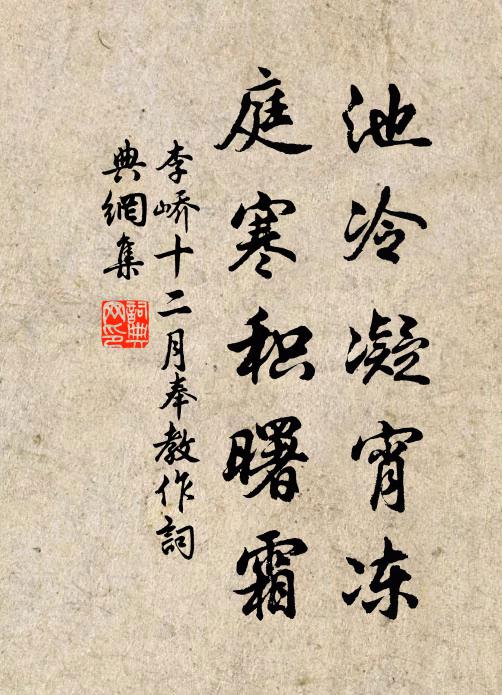 池冷凝宵冻
庭寒积曙霜
李嶠十二月奉教作詞
典網集
詞典网印